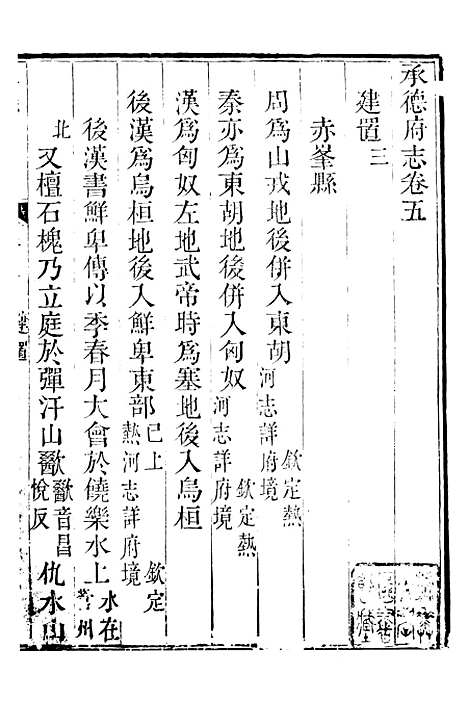 承德府志卷五
建置三
赤峯縣
周爲山戎地後併入東胡欽定熱河志詳府境
秦亦爲東胡地後併入匈奴欽定熱河志詳府境
漢爲匈奴左地武帝時爲塞地後入烏桓
後漢爲烏桓地後入鮮卑東部已上欽定熱河志詳府境
後漢書鮮卑傳以季春月大會於饒樂水上水在營州
北又檀石槐乃立庭於彈汗山歠歠音昌悅反仇水山
建置